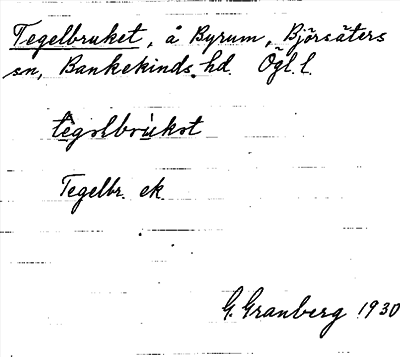 Tegelbruket, å Byrum, Björsäters
sn, Bankekinds hd. Ögl. l.
tegəlbrùkət
Tegelbr. ek.
G. Granberg 1930